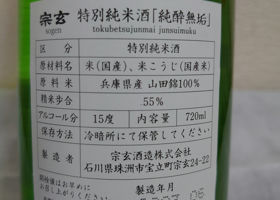 宗玄 特別純米酒「純酔無垢」
sogen tokubetsujunmai junsuimuku
区分 特別純米酒
原材料名 米(国産)、米こうじ(国産米)
原料米 兵庫県産 山田錦100%
精米歩合 55%
アルコール分 15度 内容量 720ml
保存方法 冷暗所にて保管してください
製造者 宗玄酒造株式会社
石川県珠洲市宝立町宗玄24-22
開栓後はお早めに
お召し上がりください
製造年月